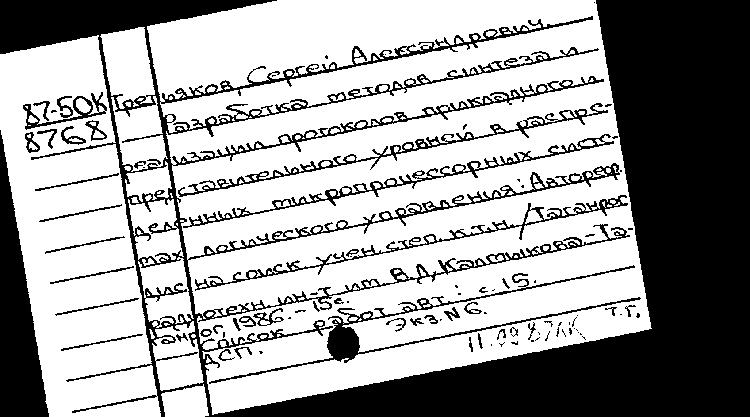 87-50К Третьяков, Сергей Александрович.
8768 Разработка методов синтеза и
реализации протоколов прикладного и
представительного уровней в распре-
деленных микропроцессорных систе-
мах логического управления: Автореф.
дис. на соиск учен. степ. к.т.н. /Таганрог.
радиотехн. ин-т им. В.Д. Калмыкова.-Та-
ганрог, 1986. - 15с.
Список работ авт.: с. 15.
ДСП. Экз. N 6.
11.09 87 Т.Г.